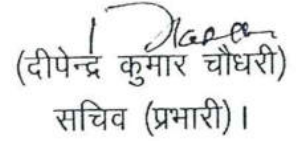 (दीपेन्द्र कुमार चौधरी)
सचिव (प्रभारी)।